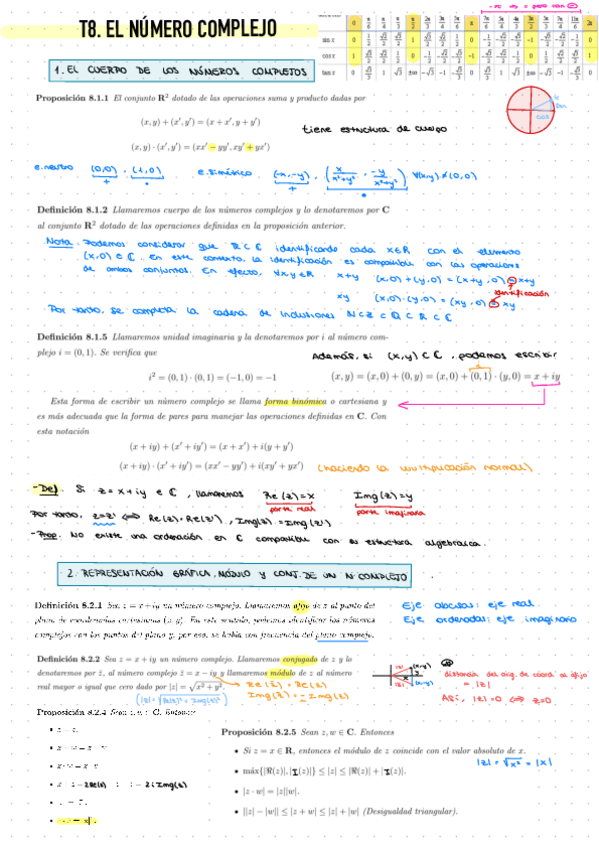 T8. EL NÚMERO COMPLEJO
1. EL CUERPO DE LOS NÚMEROS COMPLEJOS
Proposición 8.1.1 El conjunto R² dotado de las operaciones suma y producto dadas por
(x, y) + (x', y') = (x + x', y + y')
tiene estructura de cuerpo
(x, y) · (x', y') = (xx' − yy', xy' + yx')
e.neutro (0,0) , (1,0) e.simétrico (-x,-y) , (x/x²+y² , -y/x²+y²) ∀(x,y)≠(0,0)
Definición 8.1.2 Llamaremos cuerpo de los números complejos y lo denotaremos por C
al conjunto R² dotado de las operaciones definidas en la proposición anterior.
Nota. Podemos considerar que R⊂C identificando cada x∈R con el elemento
(x,0) ∈ C. En este contexto, la identificación es compatible con las operaciones
de ambos conjuntos. En efecto, ∀x,y∈R x+y (x,0)+(y,0) = (x+y,0) = x+y
identificación
xy (x,0)·(y,0) = (xy,0) = xy
Por tanto, se completa la cadena de inclusiones N⊂Z⊂Q⊂R⊂C
Definición 8.1.5 Llamaremos unidad imaginaria y la denotaremos por i al número com-
plejo i = (0, 1). Se verifica que
Además, si (x,y) ⊂ C, podemos escribir
i² = (0, 1) · (0, 1) = (−1, 0) = −1
(x, y) = (x, 0) + (0, y) = (x, 0) + (0, 1) · (y, 0) = x + iy
Esta forma de escribir un número complejo se llama forma binómica o cartesiana y
es más adecuada que la forma de pares para manejar las operaciones definidas en C. Con
esta notación
(x + iy) + (x' + iy') = (x + x') + i(y + y')
(x + iy) · (x' + iy') = (xx' − yy') + i(xy' + yx') (haciendo la multiplicación normal)
-Def. Si z=x+iy ∈ C, llamaremos Re(z)=x Img(z)=y
parte real parte imaginaria
Por tanto, z=z' ⟺ Re(z)=Re(z'), Img(z)=Img(z')
-Prop. No existe una ordenación en C compatible con su estructura algebraica.
2. REPRESENTACIÓN GRÁFICA, MÓDULO Y CONJ. DE UN Nº COMPLEJO
Definición 8.2.1 Sea z = x + iy un número complejo. Llamaremos afijo de z al punto del
plano de coordenadas cartesianas (x, y). En este sentido, podemos identificar los números
complejos con los puntos del plano y, por eso, se habla con frecuencia del plano complejo.
Eje abscisas: eje real.
Eje ordenadas: eje imaginario
Definición 8.2.2 Sea z = x + iy un número complejo. Llamaremos conjugado de z y lo
denotaremos por z̄, al número complejo z̄ = x − iy y llamaremos módulo de z al número
real mayor o igual que cero dado por |z| = √x² + y².
Re(z̄) = Re(z)
Img(z̄) = -Img(z)
|z| = √Re(z)² + Img(z)²
distancia del orig. de coord. al afijo
= |z|
Así, |z|=0 ⟺ z=0
Proposición 8.2.4 Sean z, w ∈ C. Entonces
Proposición 8.2.5 Sean z, w ∈ C. Entonces
• Si z = x ∈ R, entonces el módulo de z coincide con el valor absoluto de x.
|z| = √x² = |x|
• máx{|ℜ(z)|, |I(z)|} ≤ |z| ≤ |ℜ(z)| + |I(z)|.
• |z · w| = |z||w|.
• ||z| − |w|| ≤ |z + w| ≤ |z| + |w| (Desigualdad triangular).